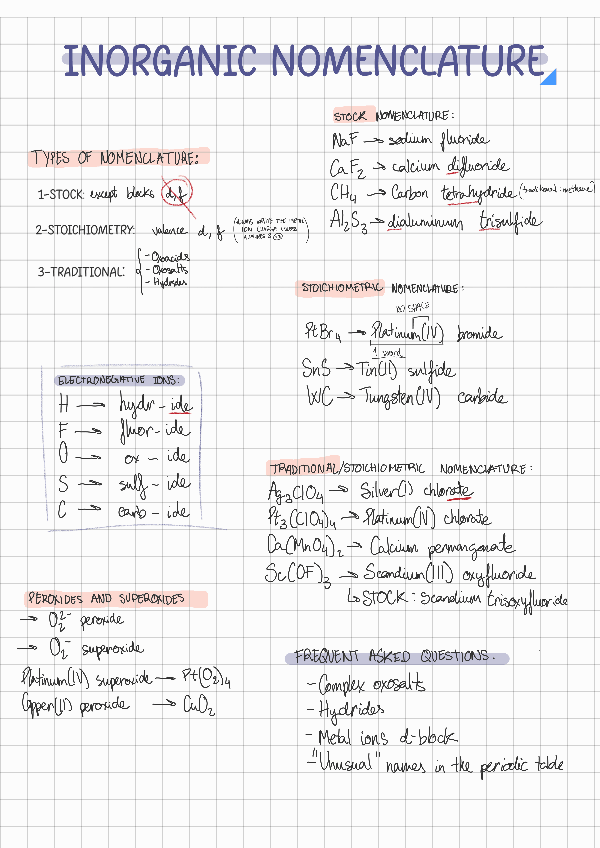 INORGANIC NOMENCLATURE
TYPES OF NOMENCLATURE:
1-STOCK: except blocks d, f
2-STOICHIOMETRY: valence d, f (ALWAYS WRITE THE METAL ION CHARGE USING NUMBERS
3-TRADITIONAL:
- Oxoacids
- Oxosalts
- Hydrides
ELECTRONEGATIVE IONS:
H → hydr - ide
F → fluor - ide
O → ox - ide
S → sulf - ide
C → carb - ide
PEROXIDES AND SUPEROXIDES
→ O₂²⁻ peroxide
→ O₂⁻ superoxide
Platinum(IV) superoxide → Pt(O₂)₄
Copper(II) peroxide → CuO₂
STOCK NOMENCLATURE:
NaF → sodium fluoride
CaF₂ → calcium difluoride
CH₄ → Carbon tetrahydride (traditional: methane)
Al₂S₃ → dialuminum trisulfide
STOICHIOMETRIC NOMENCLATURE:
NO SPACE
PtBr₄ → Platinum(IV) bromide
1 word
SnS → Tin(II) sulfide
WC → Tungsten(IV) carbide
TRADITIONAL/STOICHIOMETRIC NOMENCLATURE:
Ag₃ClO₄ → Silver(I) chlorate
Pt₃(ClO₄)₄ → Platinum(IV) chlorate
Ca(MnO₄)₂ → Calcium permanganate
Sc(OF)₃ → Scandium(III) oxyfluoride
↳ STOCK: Scandium trisoxyfluoride
FREQUENT ASKED QUESTIONS:
- Complex oxosalts
- Hydrides
- Metal ions d-block
- "Unusual" names in the periodic table